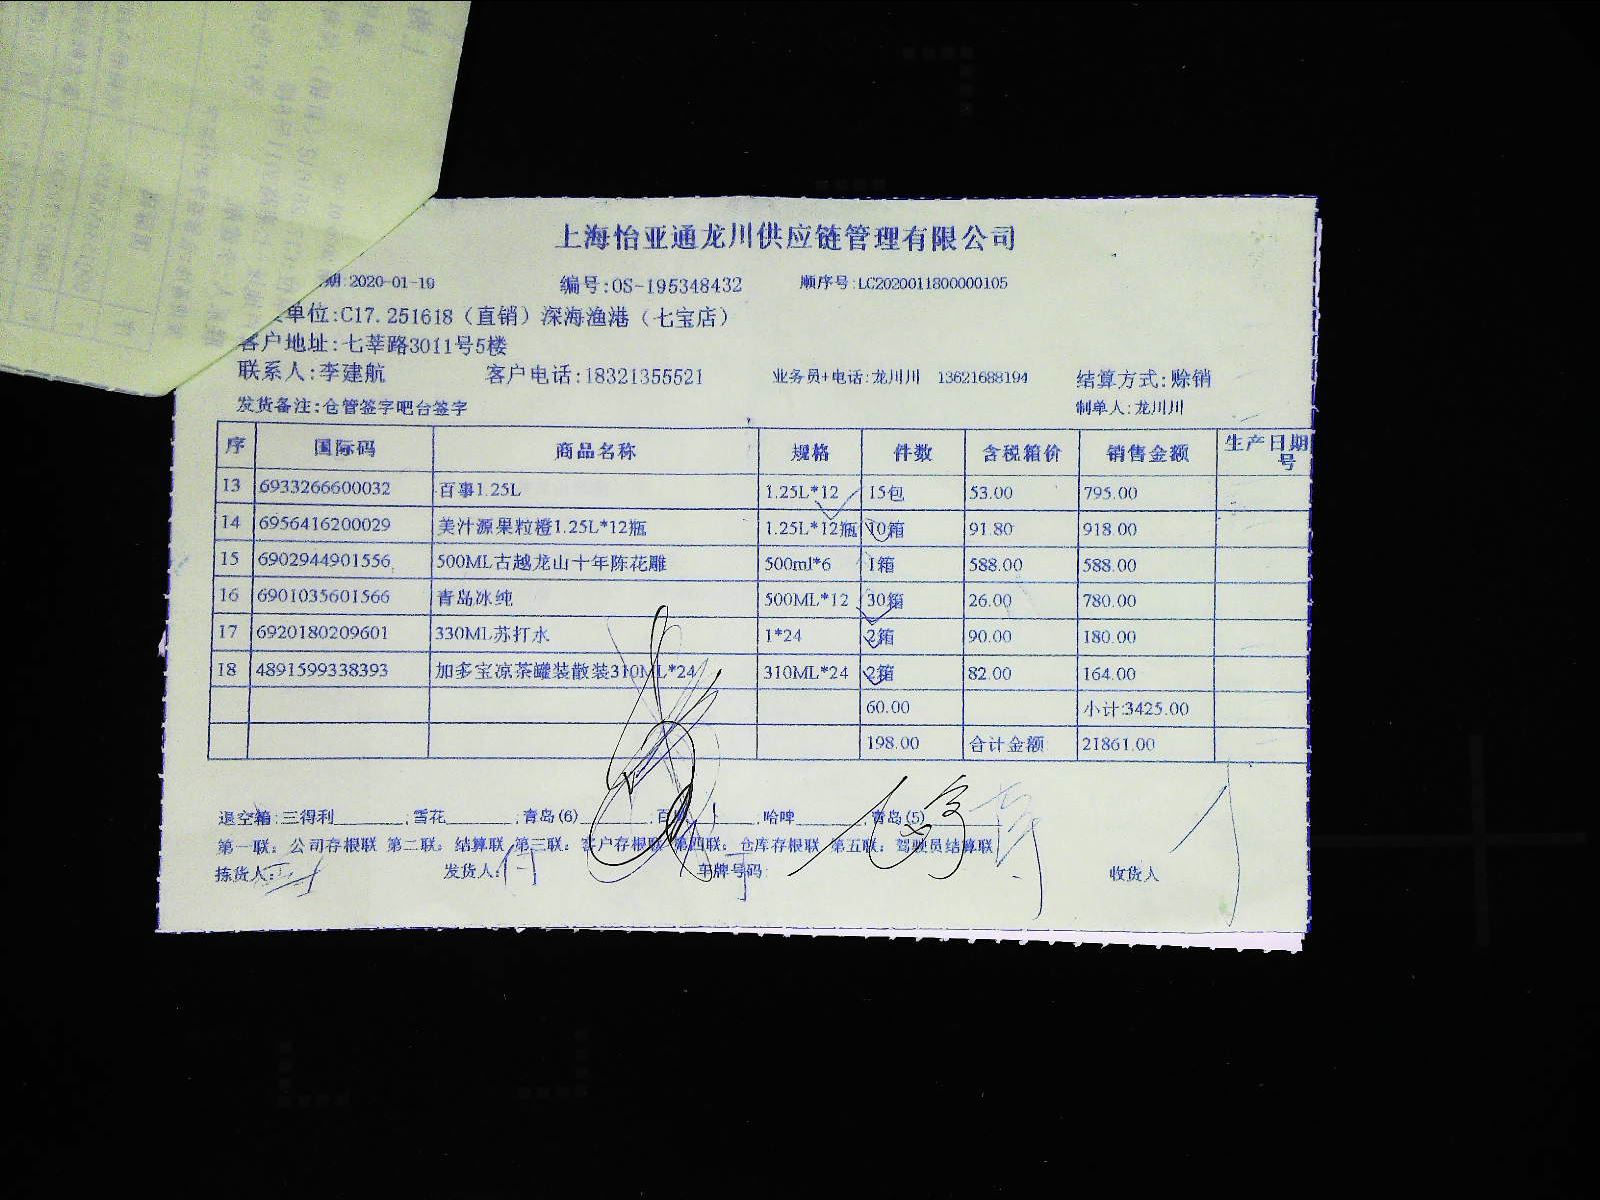 上海怡亚通龙川供应链管理有限公司
期:2020-01-19 编号:OS-195348432 顺序号:LC2020011800000105
单位:C17.251618（直销）深海渔港（七宝店）
客户地址:七莘路3011号5楼
联系人:李建航 客户电话:18321355521 业务员+电话:龙川川 13621688194 结算方式:赊销
发货备注:仓管签字吧台签字 制单人:龙川川
序 国际码 商品名称 规格 件数 含税箱价 销售金额 生产日期
号
13 6933266600032 百事1.25L 1.25L*12 15包 53.00 795.00
14 6956416200029 美汁源果粒橙1.25L*12瓶 1.25L*12瓶 10箱 91.80 918.00
15 6902944901556 500ML古越龙山十年陈花雕 500ml*6 1箱 588.00 588.00
16 6901035601566 青岛冰纯 500ML*12 30箱 26.00 780.00
17 6920180209601 330ML苏打水 1*24 2箱 90.00 180.00
18 4891599338393 加多宝凉茶罐装散装310ML*24 310ML*24 2箱 82.00 164.00
60.00 小计:3425.00
198.00 合计金额 21861.00
退空箱:三得利________;雪花________;青岛(6)________;百________;哈啤________;青岛(5)________
第一联：公司存根联 第二联：结算联 第三联：客户存根联 第四联：仓库存根联 第五联：驾驶员结算联
拣货人: 发货人: 车牌号码: 收货人